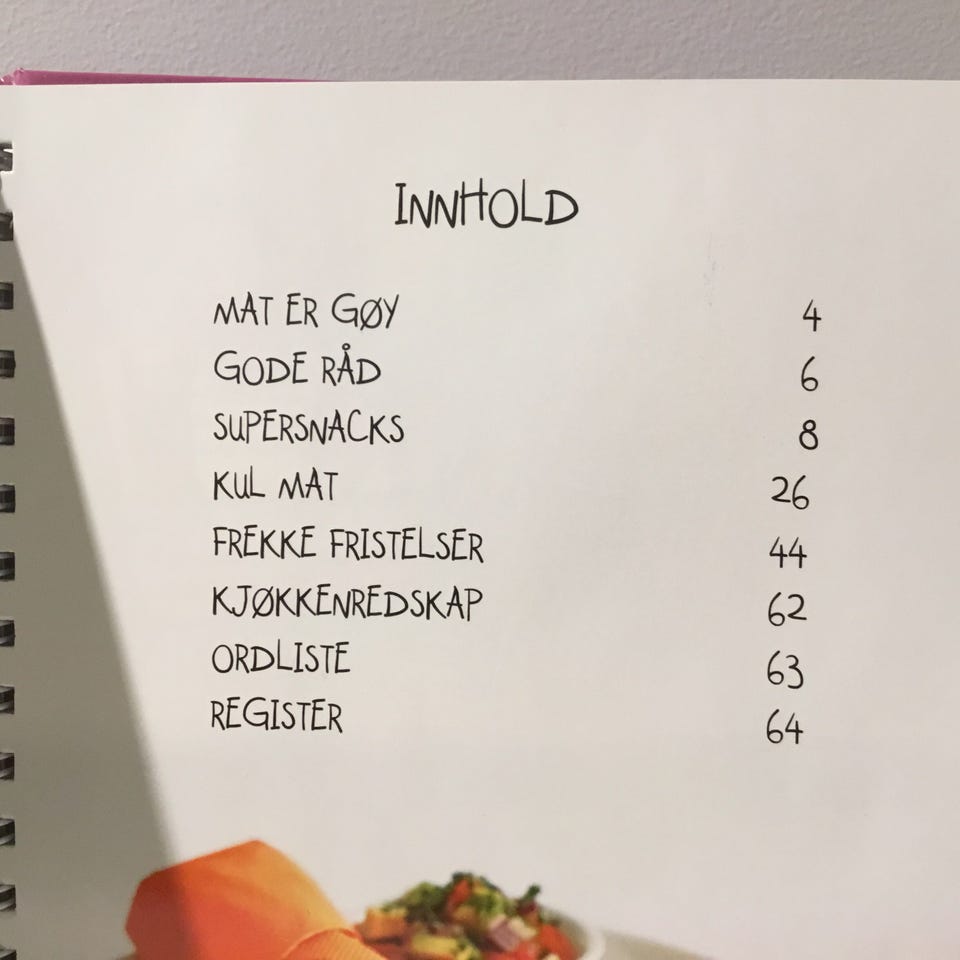 INNHOLD
MAT ER GØY 4
GODE RÅD 6
SUPERSNACKS 8
KUL MAT 26
FREKKE FRISTELSER 44
KJØKKENREDSKAP 62
ORDLISTE 63
REGISTER 64